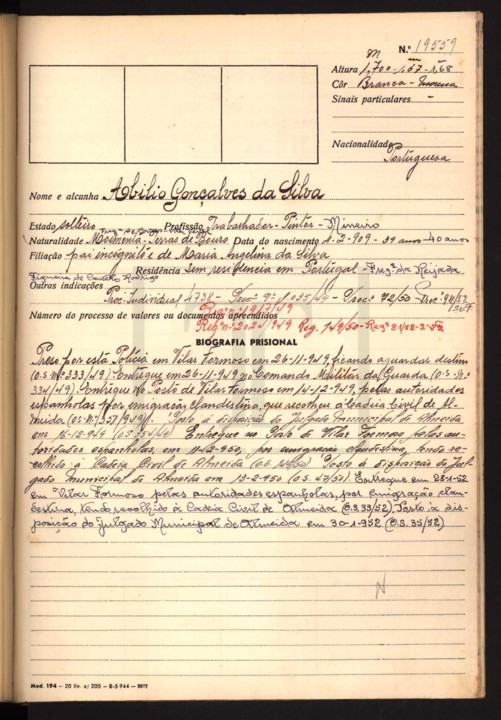 N.º 19559
Altura 1,700-1,67-1,68
m
Côr Branca - Morena
Sinais particulares -
Nacionalidade
Portuguesa
Nome e alcunha Abilio Gonçalves da Silva
Estado solteiro Profissão Trabalhador - Pintor - Mineiro
Naturalidade Moimenta - Terras de Bouro Data do nascimento 1-2-909 - 39 anos - 40 anos
Filiação pai incógnito e de Maria Angelina da Silva
Residência Sem residência em Portugal - Freg.ª da Reijada
Figueira de Castelo Rodrigo
Outras indicações
Proc. Individual 4738 - Proc. nº 1.035/49 - Proc. 72/50
Número do processo de valores ou documentos apreendidos
Reg. nº 1917/49
Reg. nº 2024/949 Reg. 149/50 - Reg.
BIOGRAFIA PRISIONAL
Preso por esta Polícia em Vilar Formoso em 26-11-949, ficando a guardar destino
(O.S. nº 333/49). Entregue em 26-11-949 no Comando Militar da Guarda (O.S. nº
334/49). Entregue no Posto de Vilar Formoso em 14-12-949, pelas autoridades
espanholas por emigração clandestina, que recolheu à Cadeia Civil de Al-
meida (O.S. nº 357/949). Posto à disposição do Julgado Municipal de Almeida
em 15-12-949 Entregue no Posto de Vilar Formoso pelas au-
toridades espanholas, em 11-2-950, por emigração clandestina, tendo re-
colhido à Cadeia Civil de Almeida Posto à disposição do Jul-
gado Municipal de Almeida em 13-2-950 (O.S. 47/50). Entregue em 28-1-52
em Vilar Formoso pelas autoridades espanholas, por emigração clan-
destina, tendo recolhido à Cadeia Civil de Almeida (O.S. 33/52). Posto à dis-
posição do Julgado Municipal de Almeida em 30-1-952 (O.S. 35/52)
N
Mod. 194 - 20 liv. a/ 200 - 8-5-944 -